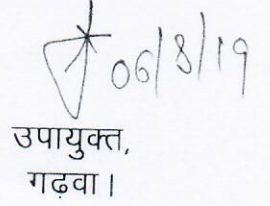 06/8/19
उपायुक्त,
गढ़वा।